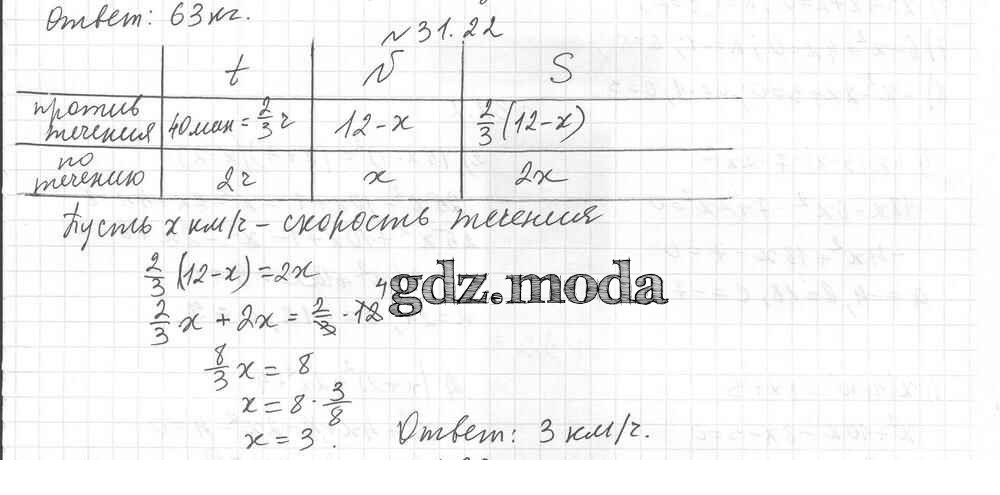 Ответ: 63 кг.
№31.22
t v S
против течения 40 мин = 2/3 ч 12-x 2/3 (12-x)
по течению 2ч x 2x
Пусть x км/ч – скорость течения
2/3 (12-x) = 2x
2/3 x + 2x = 2/3 · 12 4
gdz.moda
8/3 x = 8
x = 8 · 3/8
x = 3.
Ответ: 3 км/ч.